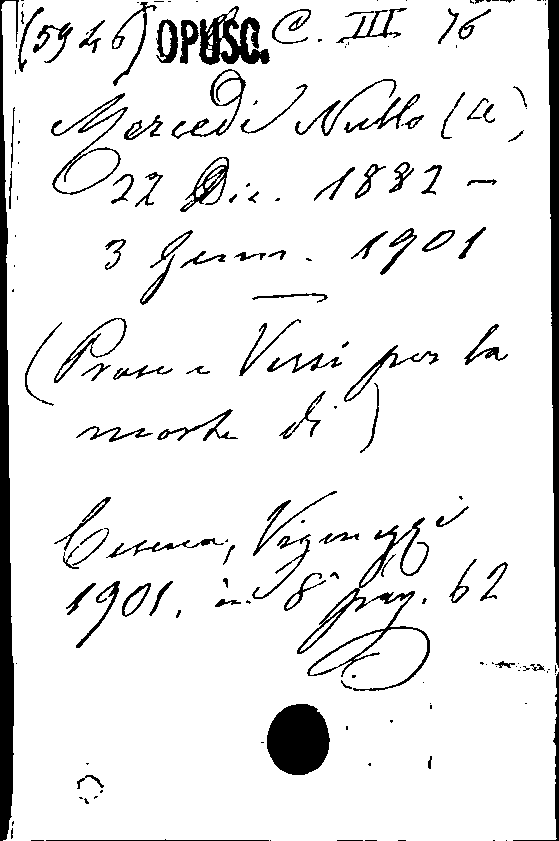 (5946) OPUSC. C. III 76
Mercedi Nullo (a)
22 Dic. 1882 –
3 Genn. 1901
(Prose e Versi per la
morte di)
Cesena, Vignuzzi
1901. in 8° pag. 62